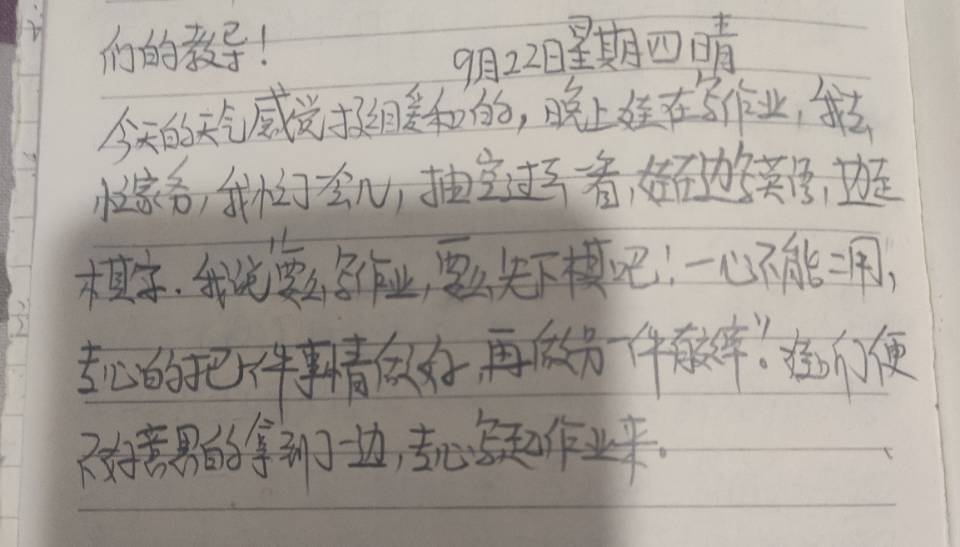 们的教导!
9月22日星期四晴
今天的天气感觉挺暖和的,晚上娃在写作业,我去
忙家务,我忙了一会儿,抽空过去一看,娃在边写英语,边走
棋字.我说"要么写作业,要么先下棋吧!一心不能二用,
专心的把一件事情做好,再做另一件有效率"。孩子们便
不好意思的拿到了一边,专心写起作业来。